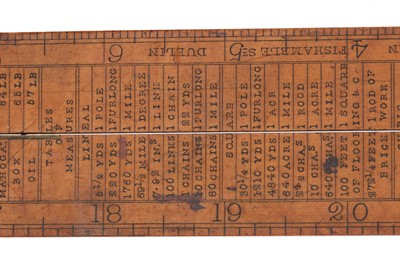 6 DUBLIN 5 FISHAMBLE ST 4
64 LB
BOX 65 LB
OIL 57 LB
TABLES
OF
MEASURES
LINEAL
5½ YDS 1 POLE
220 YDS 1 FURLONG
1760 YDS 1 MILE
69½ MILE 1 DEGREE
7.92 INS 1 LINK
100 LINKS 1 CHAIN
1 CHAINS 22 YDS
10 CHAINS 1 FURLONG
80 CHAINS 1 MILE
SQUARE
30¼ YDS 1 POLE
1210 YDS 1 ROOD
4840 YDS 1 ACR
640 ACRE 1 MILE
2½ CHAS 1 ROOD
10 CHAS 1 ACRE
640 ACRES 1 MILE
100 FEET 1 SQUARE
OF FLOORING & C
272¼ FEET 1 ROD OF
BRICK WORK
18 19 20